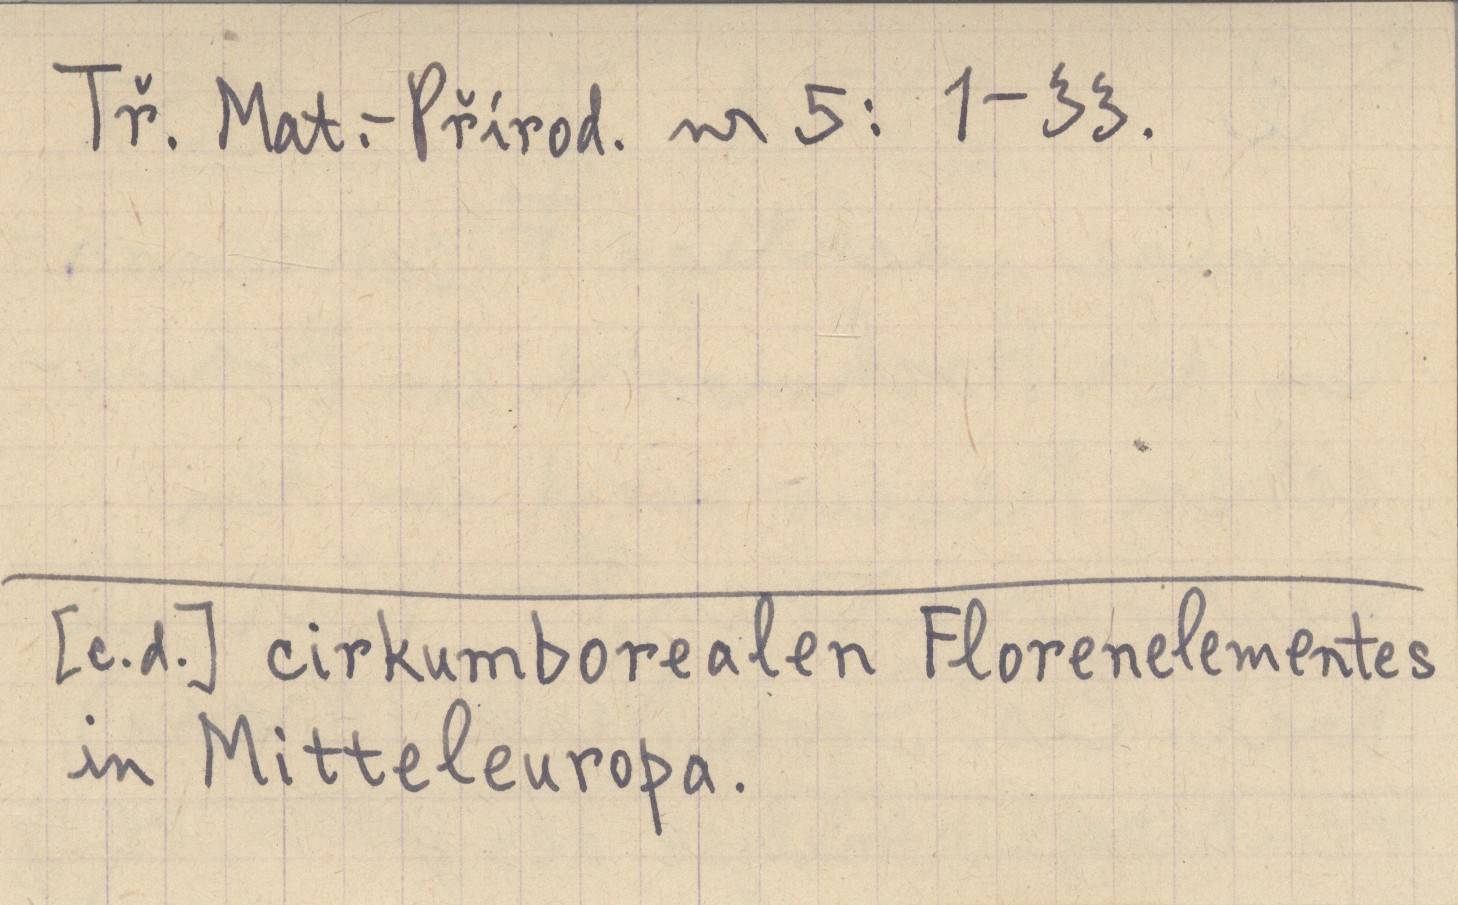 Tř. Mat.-Přírod. nr 5: 1-33.
[c.d.] cirkumborealen Florenelementes
in Mitteleuropa.